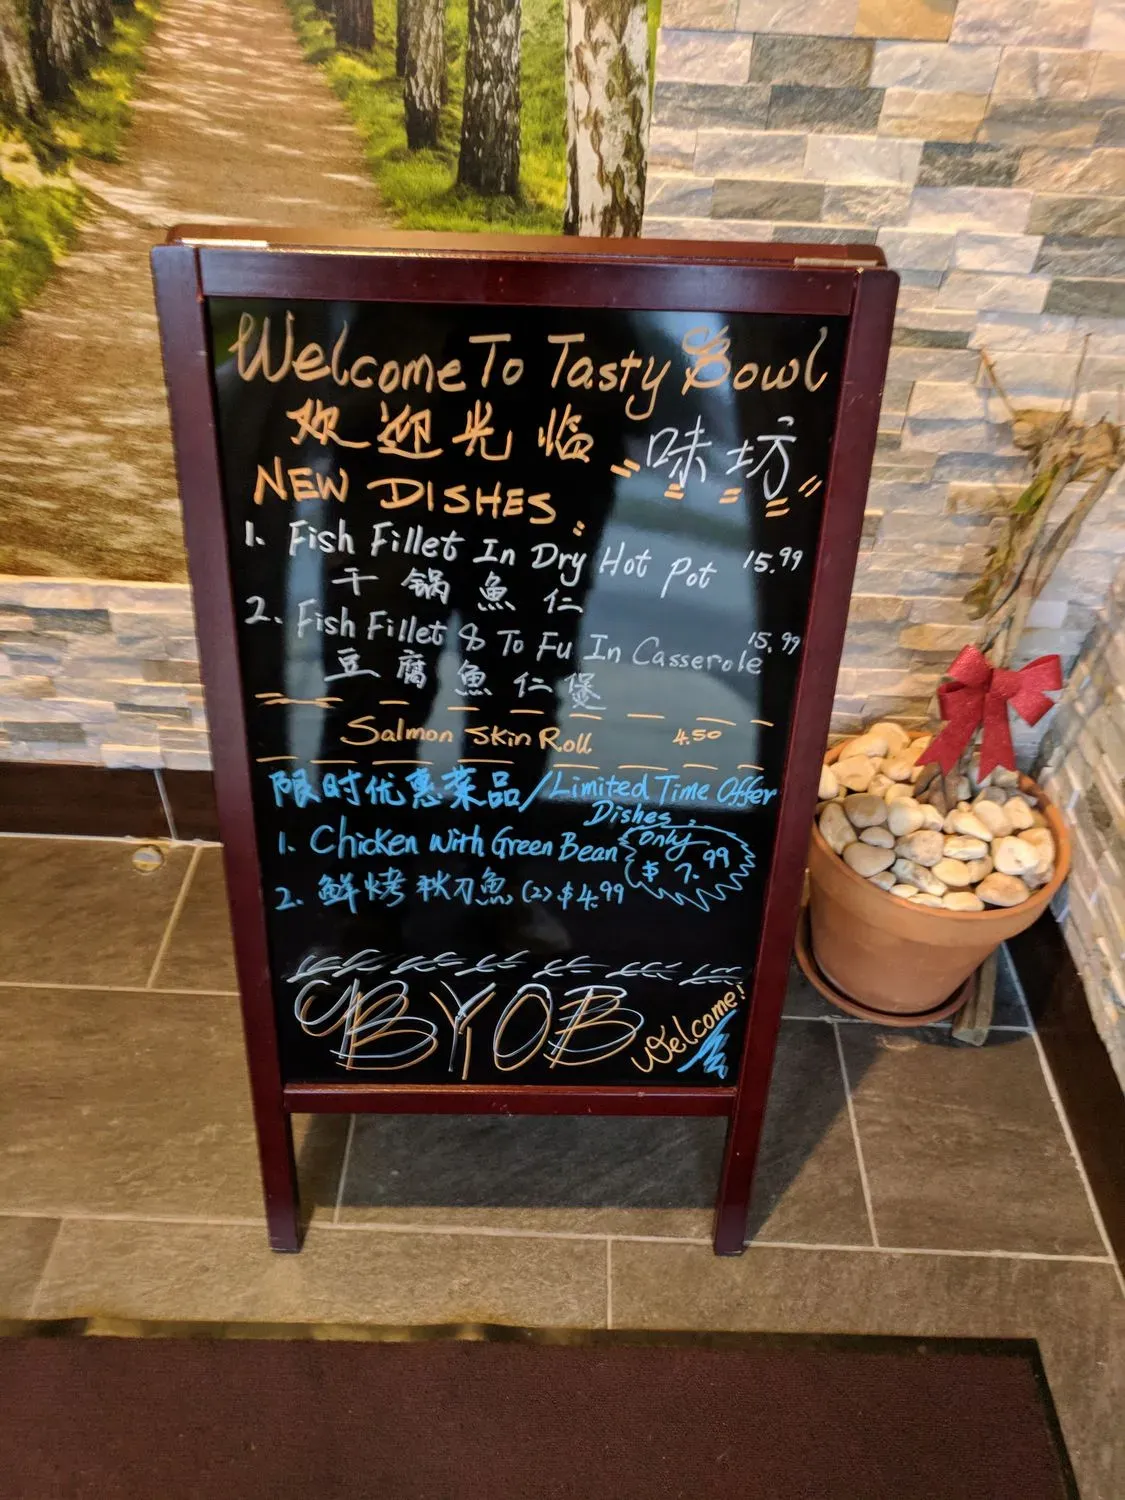 Welcome To Tasty Bowl
欢迎光临 味坊
NEW DISHES:
1. Fish Fillet In Dry Hot Pot 15.99
干锅魚仁
2. Fish Fillet & To Fu In Casserole 15.99
豆腐魚仁煲
Salmon Skin Roll 4.50
限时优惠菜品/Limited Time Offer
Dishes.
1. Chicken With Green Bean Only $7.99
2. 鲜烤秋刀魚 (2) $4.99
BYOB Welcome!